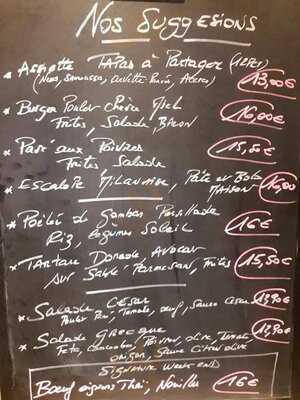 Nos Suggesions
* Assiette Tapas à Partager (12 Pcs)
(Nems, Samoussa, 13,00€
* Burger Poulet Chèvre Miel
Frites, Salade, Bacon 16,00€
* Pavé aux Poivres
Frites Salade 15,50€
* Escalope Milanaise, Pâte et Bolo
Maison 16,00
* Poêlée de Gambas Persillade
Riz, legumes Soleil 16€
* Tartare Dorade, Avocat
sur Sablé Parmesan, Frites 15,50€
* Salade César
Poulet Pané, Tomate, oeuf, Sauce Cesar 13,90€
* Salade Grecque
Feta, Concombre, Poivron, olive, Tomate
origan, Sauce Citron olive
Signature Week-end
Boeuf oignons Thaï, Nouilles 16€